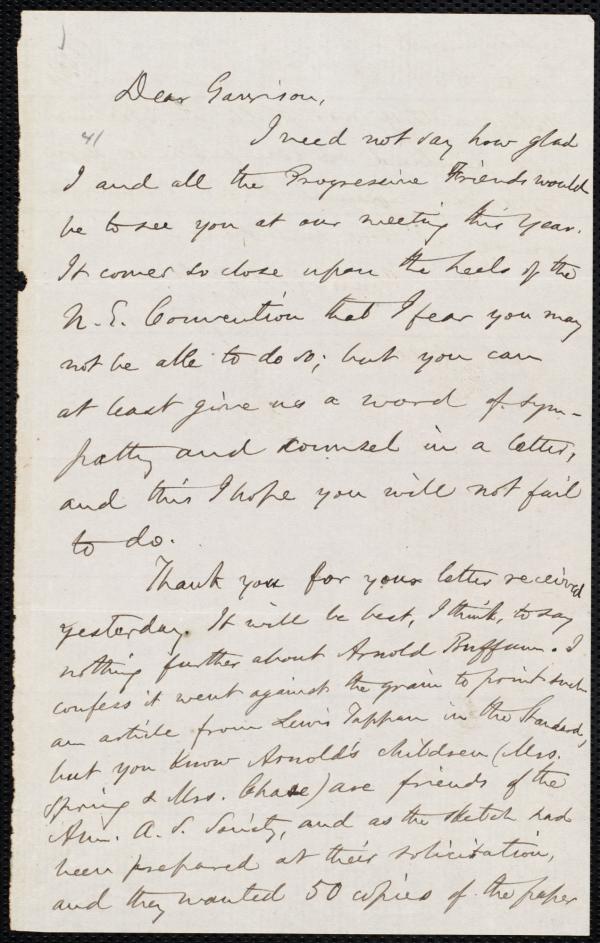 Dear Garrison,
41
I need not say how glad
I and all the Progressive Friends would
be to see you at our meeting this year.
It comes so close upon the heels of the
N. E. Convention that I fear you may
not be able to do so; but you can
at least give us a word of sym-
pathy and counsel in a letter,
and this I hope you will not fail
to do.
Thank you for your letter received
yesterday. It will be best, I think, to say
nothing further about Arnold Buffum. I
confess it went against the grain to print such
an article from Lewis Tappan in the Standard,
but you know Arnold's children (Mrs.
Spring & Mrs. Chase) are friends of the
Am. A. S. Society, and as the sketch had
been prepared at their solicitation,
and they wanted 50 copies of the paper